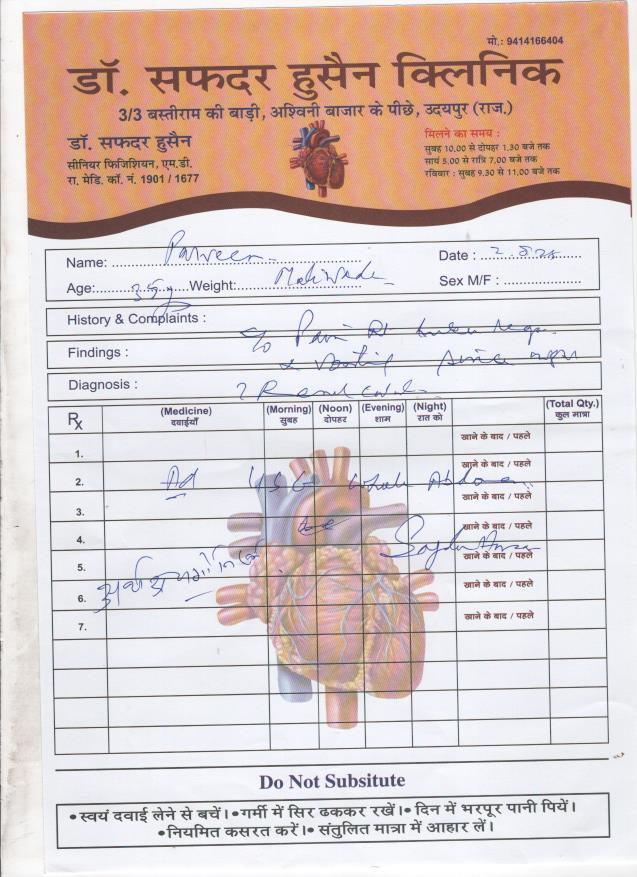 मो.: 9414166404
डॉ. सफदर हुसैन क्लिनिक
3/3 बस्तीराम की बाड़ी, अश्विनी बाजार के पीछे, उदयपुर (राज.)
डॉ. सफदर हुसैन
सीनियर फिजिशियन, एम.डी.
रा. मेडि. कॉ. नं. 1901 / 1677
मिलने का समय :
सुबह 10.00 से दोपहर 1.30 बजे तक
सायं 5.00 से रात्रि 7.00 बजे तक
रविवार : सुबह 9.30 से 11.00 बजे तक
Name: Parveen Date :
Age: 35y Weight: Sex M/F :
History & Complaints :
Findings : c/o Pain
Diagnosis : ? Renal
Rx (Medicine) (Morning) (Noon) (Evening) (Night) (Total Qty.)
दवाईयाँ सुबह दोपहर शाम रात को कुल मात्रा
1. खाने के बाद / पहले
2. Ad USG Whole Abdomen खाने के बाद / पहले
3. खाने के बाद / पहले
4. खाने के बाद / पहले
5. खाने के बाद / पहले
6. खाने के बाद / पहले
7. खाने के बाद / पहले
Do Not Subsitute
•स्वयं दवाई लेने से बचें। •गर्मी में सिर ढककर रखें। • दिन में भरपूर पानी पियें।
•नियमित कसरत करें। • संतुलित मात्रा में आहार लें।